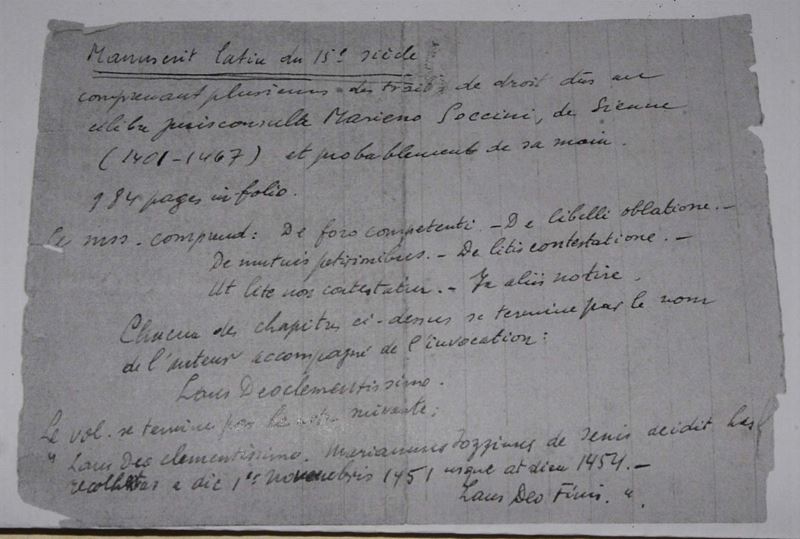 Manuscrit latin du 15e siècle
comprenant plusieurs des traités de droit dûs au
célèbre jurisconsulte Mariano Soccini, de Sienne
(1401-1467) et probablement de sa main.
984 pages in folio.
Le mss. comprend: De foro competenti. - De libelli oblatione. -
De mutuis petitionibus. - De litis contestatione. -
Ut lite non contestatur. -
Chacun des chapitres ci-dessus se termine par le nom
de l'auteur accompagné de l'invocation:
Laus Deo clementissimo.
Le vol. se termine par la note suivante:
"Laus Deo clementissimo. Mariannus Sozzinus de Senis
a die 1er Novembris 1451 usque at diem 1454. -
Laus Deo Finis. ".